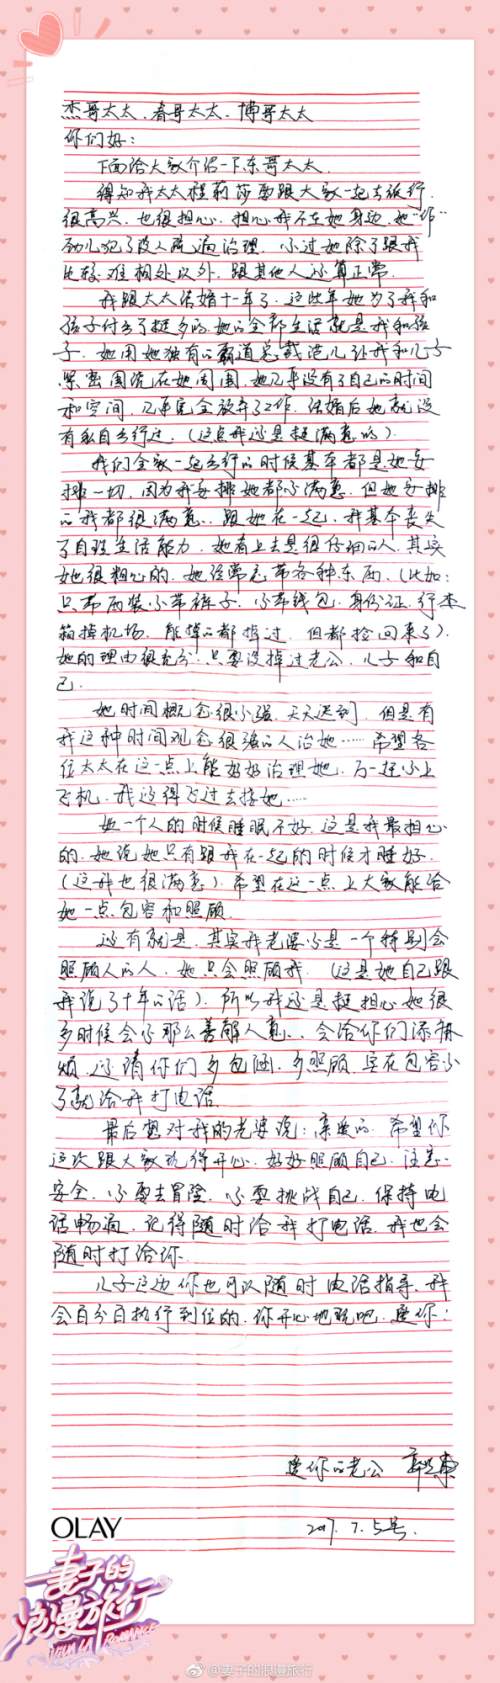 杰哥太太、春哥太太、博哥太太
你们好：
下面给大家介绍一下东哥太太。
得知我太太程莉莎要跟大家一起去旅行，
很高兴，也很担心，担心我不在她身边，她“作”
劲儿犯了没人能遍治理，不过她除了跟我
比较难相处以外，跟其他人还算正常。
我跟太太结婚十一年了，这些年她为了我和
孩子付出了挺多的，她的全部生活就是我和孩
子，她用她独有的霸道总裁范儿让我和儿子
紧密围绕在她周围，她几乎没有了自己的时间
和空间，几乎完全放弃了工作，结婚后她就没
有私自出行过，（这点我还是挺满意的）。
我们全家一起出行的时候基本都是她安
排一切，因为我安排她都不满意，但她安排
的我都很满意，跟她在一起，我基本丧失
了自理生活能力，她看上去是很仔细的人，其实
她很粗心的，她经常忘带各种东西，（比如：
只带西装不带裤子，不带钱包，身份证，行李
箱掉机场，能掉的都掉过，但都捡回来了）。
她的理由很充分，只要没掉过老公，儿子和自
己。
她时间概念很不强，天天迟到，但是有
我这种时间观念很强的人治她……希望各
位太太在这一点上能好好治理她，万一赶不上
飞机，我还得飞过去接她……
她一个人的时候睡眠不好，这是我最担心
的，她说她只有跟我在一起的时候才睡好。
（这我也很满意）。希望在这一点上大家能给
她一点包容和照顾。
还有就是，其实我老婆不是一个特别会
照顾人的人，她只会照顾我，（这是她自己跟
我说了十年的话），所以我还是挺担心她很
多时候会不那么善解人意，会给你们添麻
烦，还请你们多包涵，多照顾，实在包容不
了就给我打电话。
最后想对我的老婆说：亲爱的，希望你
这次跟大家玩得开心，好好照顾自己，注意
安全，不要去冒险，不要挑战自己，保持电
话畅通，记得随时给我打电话，我也会
随时打给你。
儿子这边你也可以随时电话指导，我
会百分百执行到位的，你开心地玩吧，爱你！
爱你的老公 郭晓东
2017.7.5号.
OLAY
妻子的
浪漫旅行
@妻子的浪漫旅行